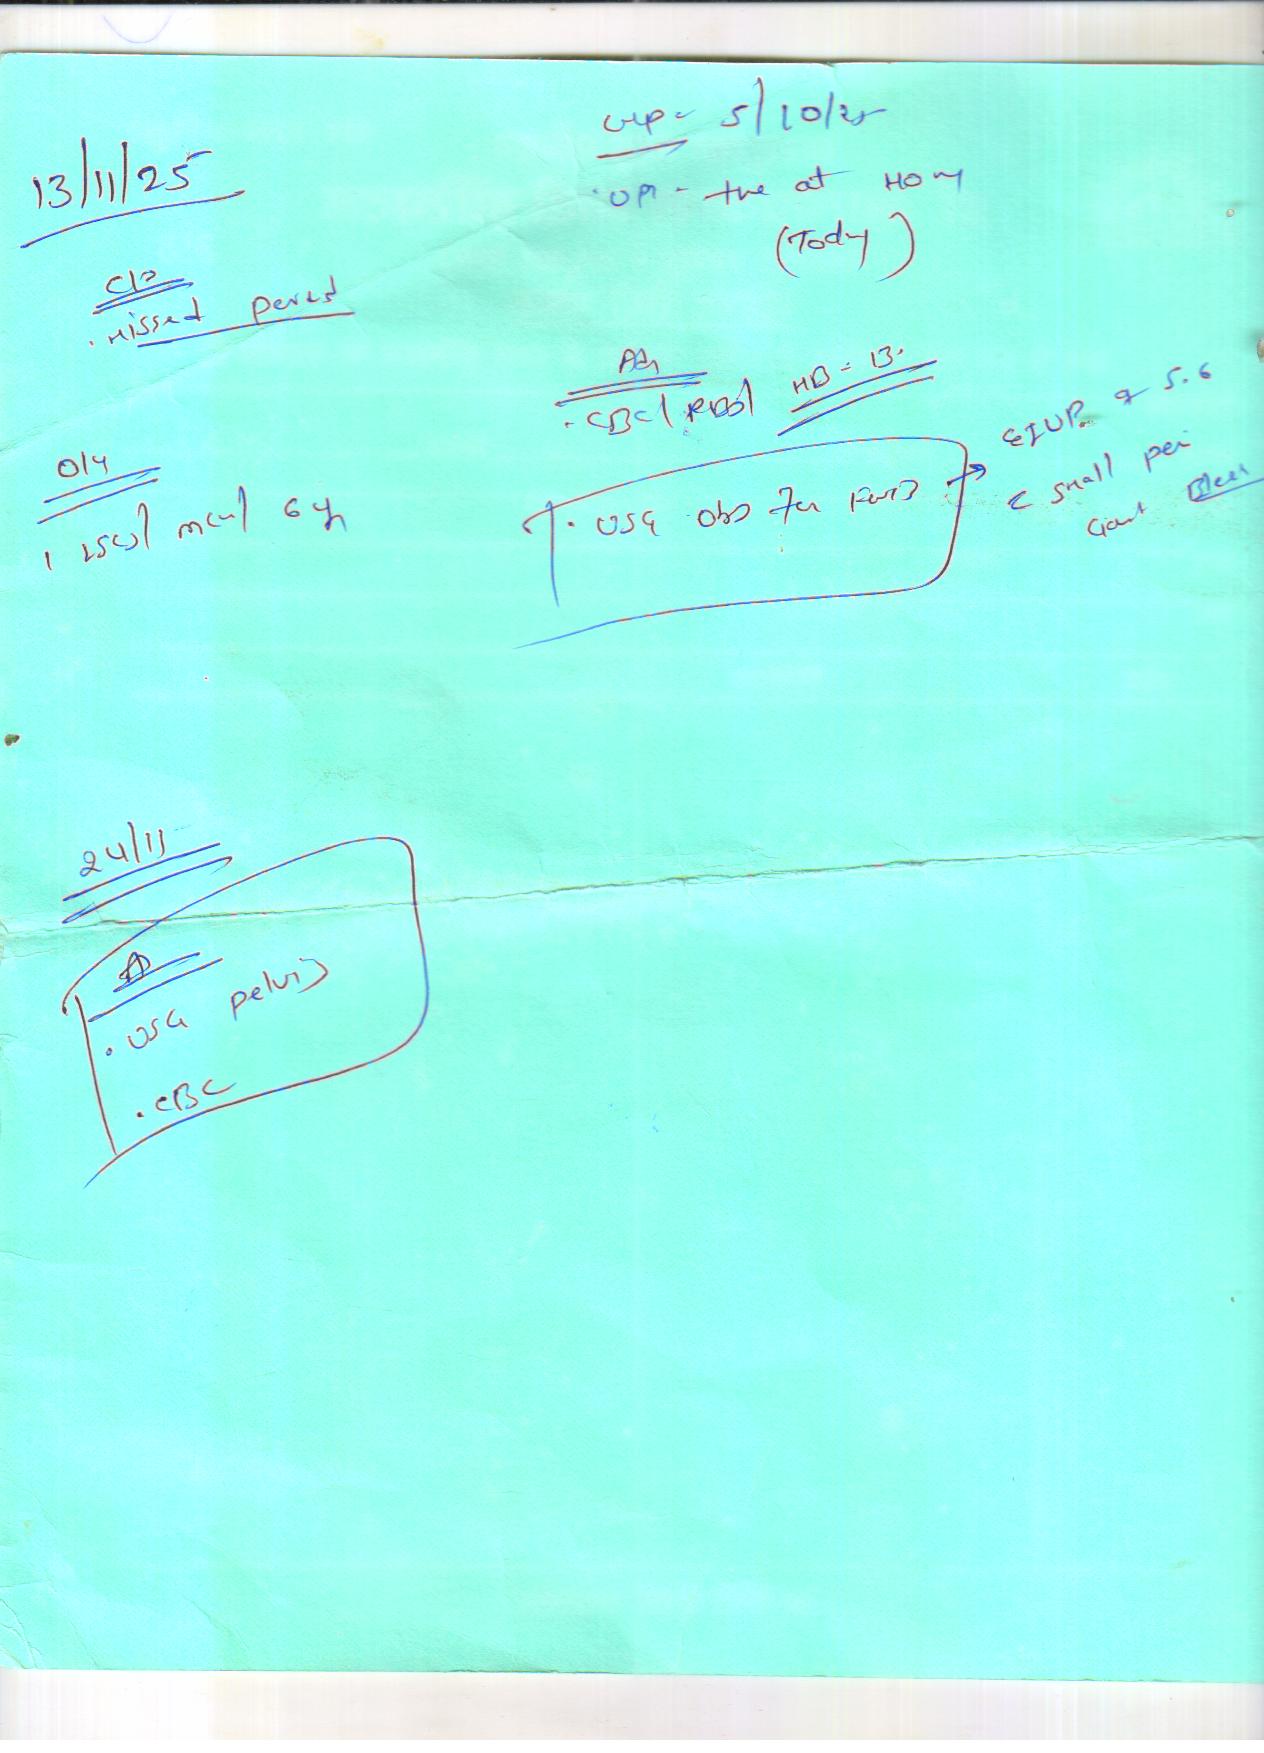 13/11/25
LMP - 5/10/25
UPT - +ve at Home
(Today)
C/o
. Missed period
Adv
. CBC / RBS / HB = 13.
O/H
1 LSCS / MCH / 6 yr
. USG Obs for FWB → SIUP of 5.6
c small peri
Gest Bleed
24/11
A
. USG pelvis
. CBC